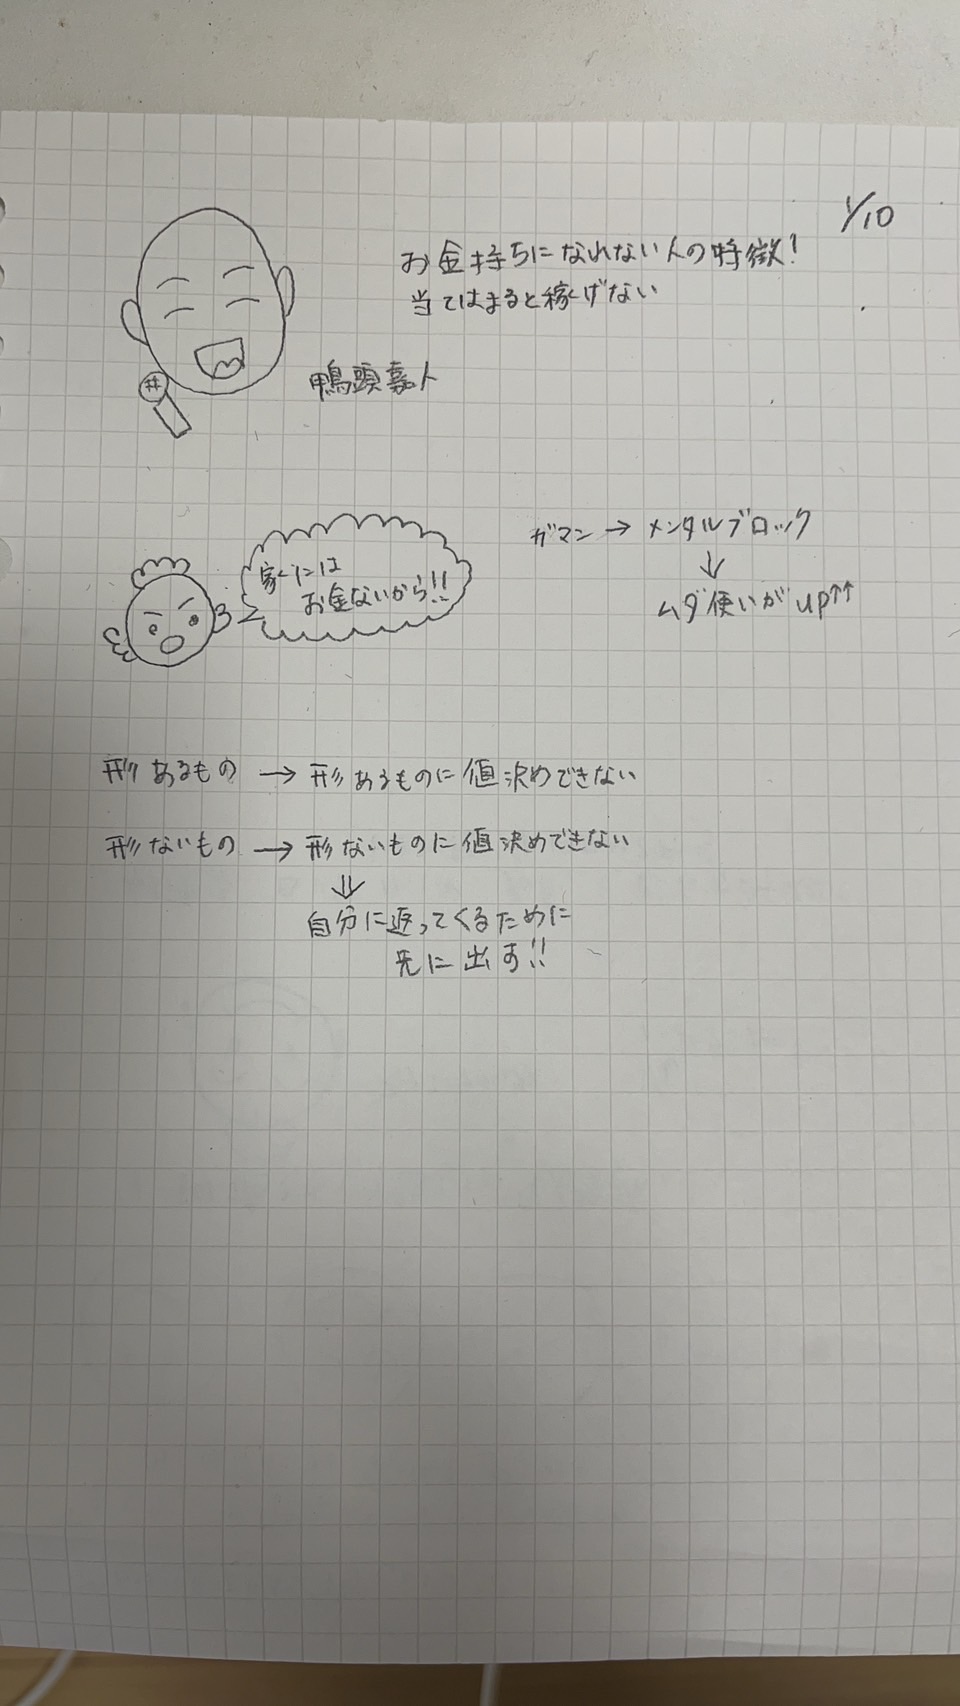 1/10
お金持ちになれない人の特徴!
当てはまると稼げない
鴨頭嘉人
家には
お金ないから!!
ガマン → メンタルブロック
↓
ムダ使いがup↑↑
形あるもの → 形あるものに値決めできない
形ないもの → 形ないものに値決めできない
⇓
自分に返ってくるために
先に出す!!